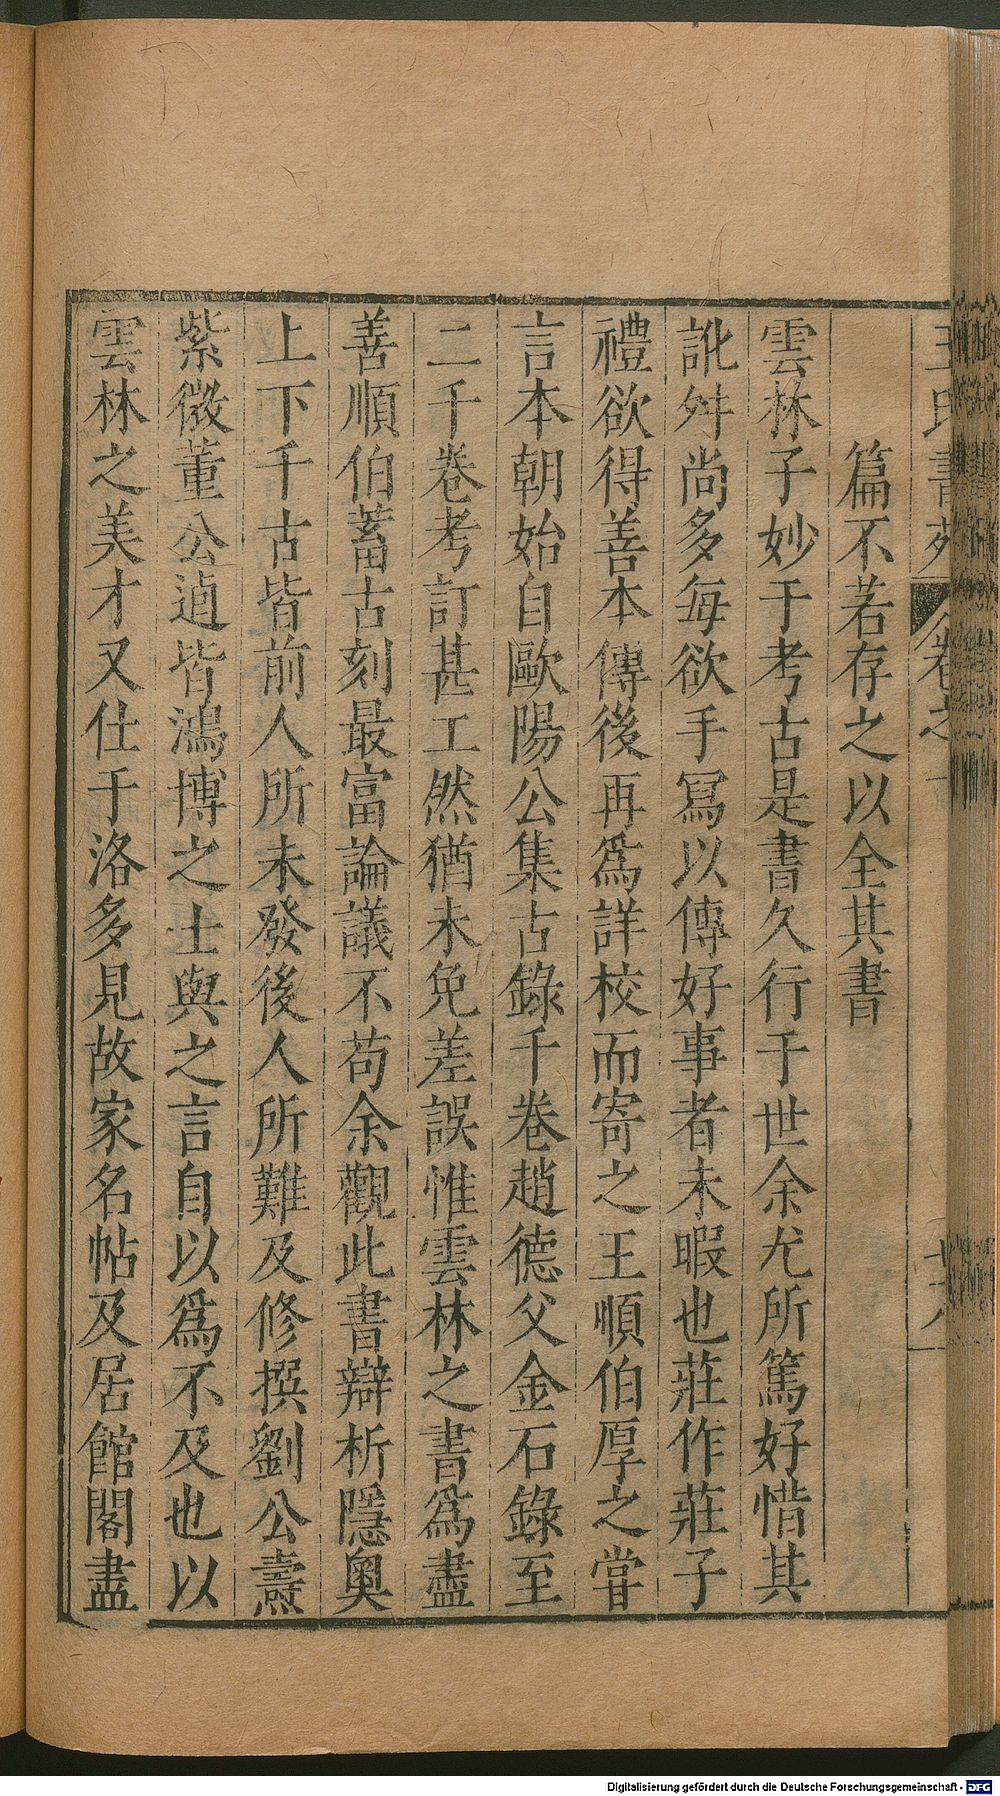 王氏書苑 卷之一 廿八
篇不若存之以全其書
雲林子妙于考古是書久行于世余尤所篤好惜其
訛舛尚多每欲手冩以傳好事者未暇也莊作莊子
禮欲得善本傳後再爲詳校而寄之王順伯厚之嘗
言本朝始自歐陽公集古錄千卷趙德父金石錄至
二千卷考訂甚工然猶未免差誤惟雲林之書爲盡
善順伯蓄古刻最富論議不苟余觀此書辯析隱奧
上下千古皆前人所未發後人所難及修撰劉公燾
紫微董公逌皆鴻博之士與之言自以爲不及也以
雲林之美才又仕于洛多見故家名帖及居館閣盡
Digitalisierung gefördert durch die Deutsche Forschungsgemeinschaft - DFG